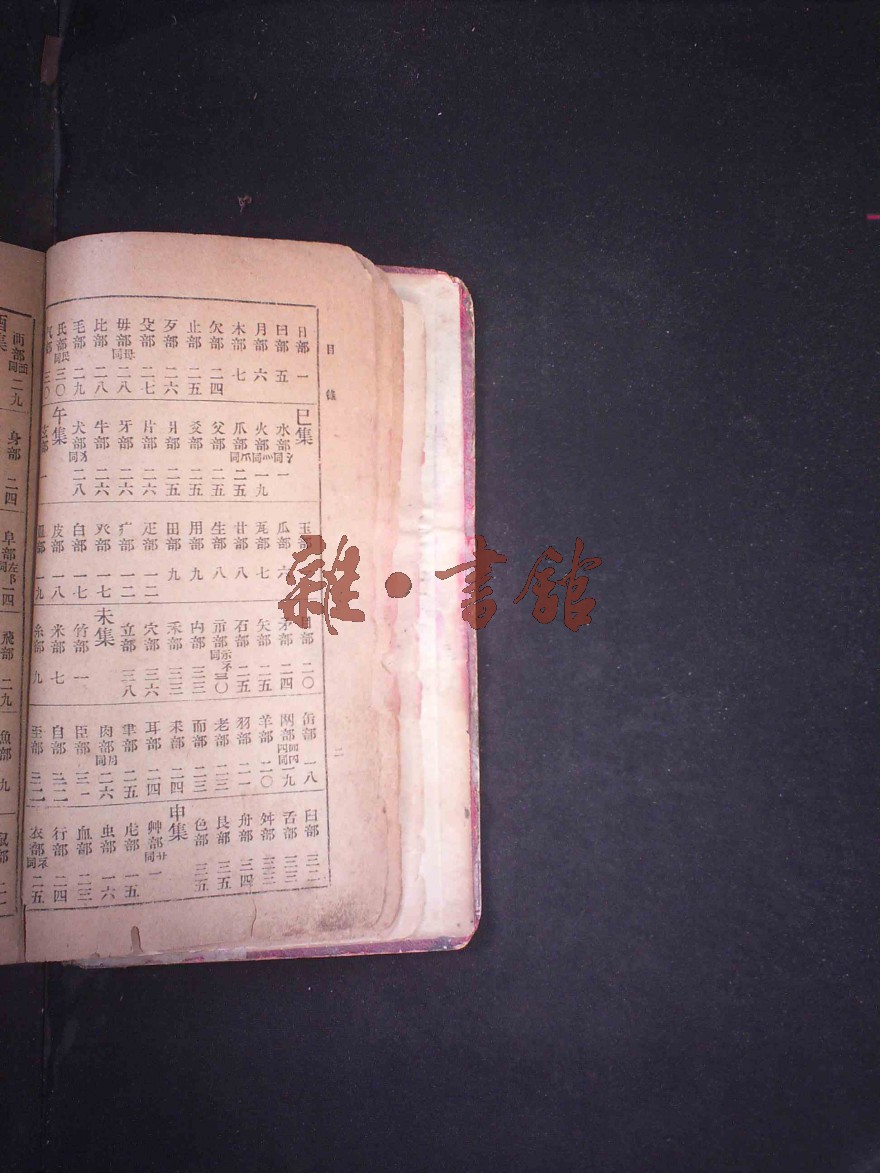 目錄
日部 一
曰部 五
月部 六
木部 七
欠部 二四
止部 二五
歹部 二六
殳部 二七
毋部母同 二八
比部 二八
毛部 二九
氏部民同 三〇
气部 三〇
巳集
水部氵同 一
火部灬同 一九
爪部爫同 二五
父部 二五
爻部 二五
爿部 二五
片部 二六
牙部 二六
牛部 二六
犬部犭同 二八
午集
玄部 一
玉部
瓜部 六
瓦部 七
甘部 八
生部 八
用部 九
田部 九
疋部 一二
疒部 一二
癶部 一七
白部 一七
皮部 一八
皿部 一九
目部 二〇
矛部 二四
矢部 二五
石部 二五
示部礻同 三〇
禸部 三三
禾部 三三
穴部 三六
立部 三八
未集
竹部 一
米部 七
糸部 九
缶部 一八
网部 同 一九
羊部 二〇
羽部 二一
老部 二三
而部 二三
耒部 二四
耳部 二四
聿部 二五
肉部月同 二六
臣部 三一
自部 三二
至部 三二
臼部 三二
舌部 三三
舛部 三三
舟部 三四
艮部 三五
色部 三五
申集
艸部艹同 一
虍部 一五
虫部 一六
血部 二三
行部 二四
衣部衤同 二五
二
襾部西同 二九
酉集
身部 二四
阜部左阝同 一四
飛部 二九
魚部 九
鼠部
雜·書館